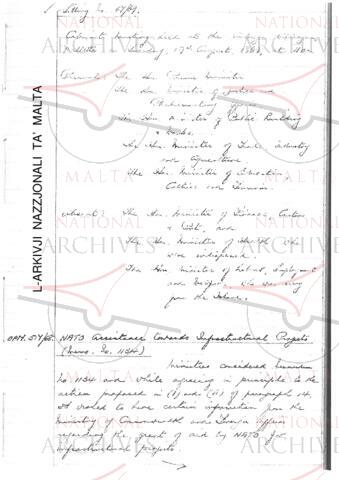 Sitting No. 67/69.
Cabinet Meeting held at the
Valletta on Sunday, 17th August, 1969, at
Present: The Hon. Prime Minister
The Hon. Minister of Justice and
Parliamentary Affairs
The Hon. Minister of Public Building
& Works.
The Hon. Minister of Trade, Industry
and Agriculture
The Hon. Minister of Education,
Culture and Tourism.
Absent: The Hon. Minister of Finance, Customs
& Port, and
The Hon. Minister of Health who
were indisposed.
The Hon. Minister of Labour, Employment
and Welfare, who was away
from the Island.
NATO Assistance towards Infrastructural Projects
(Memo. No. 1184)
Ministers considered Memorandum
No 1184 and while agreeing in principle to the
action proposed in (i) and (ii) of paragraph 14,
wished to have certain information from the
Ministry of Commonwealth and Foreign Affairs
regarding the grant of aid by NATO for
infrastructural projects.
L-ARKIVJI NAZZJONALI TA' MALTA
NATIONAL
ARCHIVES
MALTA